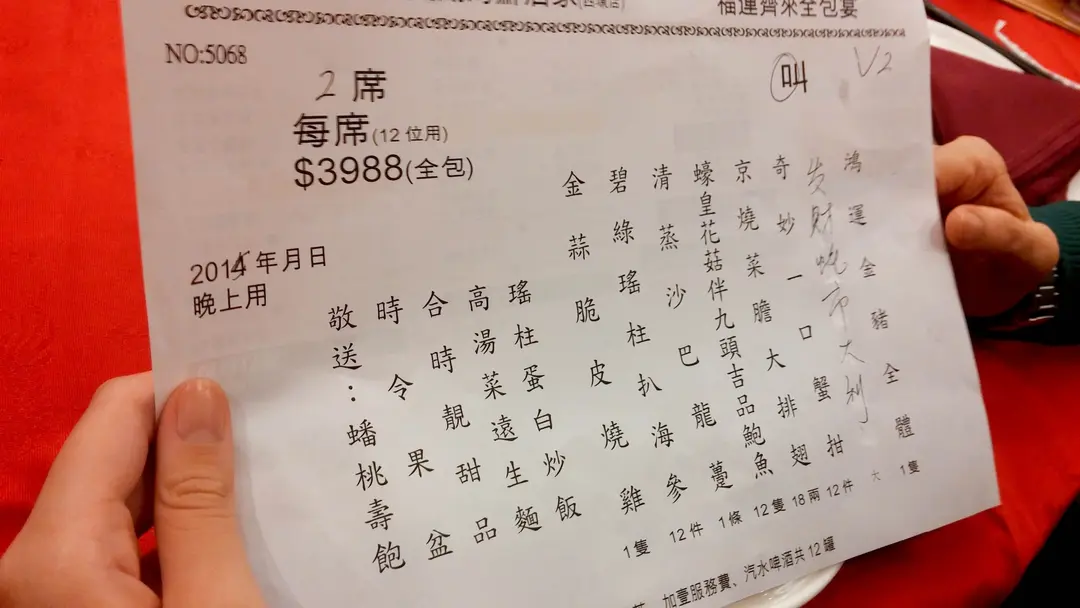 福運齊來全包宴
NO:5068
2席
叫 V2
每席(12位用)
$3988(全包)
2015年月日
晚上用
鴻運金豬全體 1隻
发财蚝市大利 大
奇妙一口蟹拑 12件
京燒菜膽大排翅 18兩
蠔皇花菇伴九頭吉品鮑魚 12隻
清蒸沙巴龍躉 1條
碧綠瑤柱扒海參 12件
金蒜脆皮燒雞 1隻
瑤柱蛋白炒飯
高湯菜遠生麵
合時靚甜品
時令果盆
敬送：蟠桃壽飽
加壹服務費、汽水啤酒共12罐